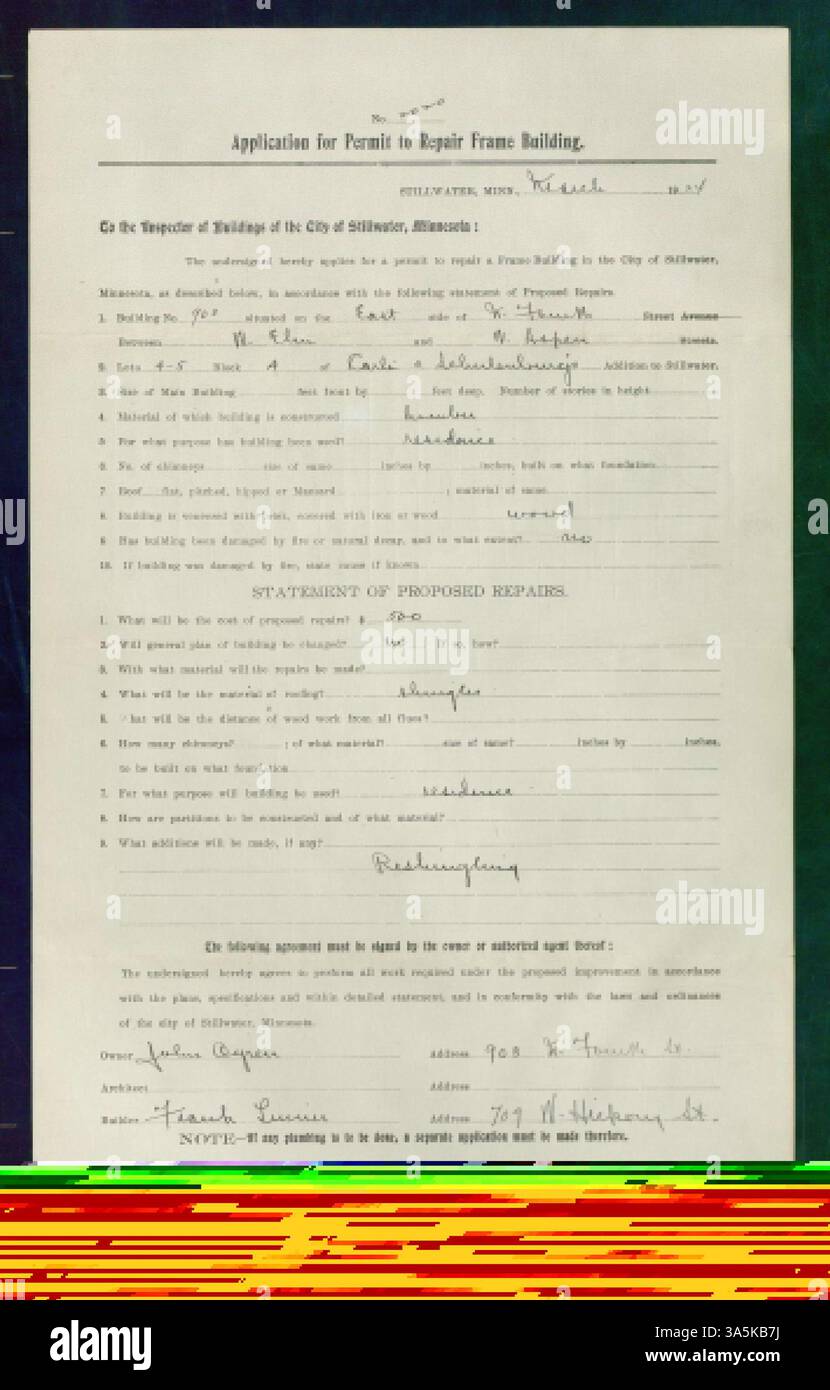 No.
Application for Permit to Repair Frame Building.
STILLWATER, MINN., March 19
To the Inspector of Buildings of the City of Stillwater, Minnesota:
The undersigned hereby applies for a permit to repair a Frame Building in the City of Stillwater,
Minnesota, as described below, in accordance with the following statement of Proposed Repairs.
1. Building No. 903 situated on the East side of N. Fourth Street Avenue
Between W. Elm and W. Aspen Streets.
2. Lots 4-5 Block 4 of Carli & Schulenburg's Addition to Stillwater.
3. Size of Main Building feet front by feet deep. Number of stories in height
4. Material of which building is constructed lumber
5. For what purpose has building been used? residence
6. No. of chimneys size of same inches by inches, built on what foundation
7. Roof flat, pitched, hipped or Mansard ; material of same
8. Building is veneered with brick, covered with iron or wood wood
9. Has building been damaged by fire or natural decay, and to what extent? no
10. If building was damaged by fire, state cause if known
STATEMENT OF PROPOSED REPAIRS.
1. What will be the cost of proposed repairs? $ 500
2. Will general plan of building be changed? no If so, how?
3. With what material will the repairs be made?
4. What will be the material of roofing? shingles
5. hat will be the distance of wood work from all flues?
6. How many chimneys? ; of what material? size of same? inches by inches,
to be built on what foundation
7. For what purpose will building be used? residence
8. How are partitions to be constructed and of what material?
9. What additions will be made, if any?
Reshingling
The following agreement must be signed by the owner or authorized agent thereof:
The undersigned hereby agrees to perform all work required under the proposed improvement in accordance
with the plans, specifications and within detailed statement, and in conformity with the laws and ordinances
of the city of Stillwater, Minnesota.
Owner John Ogren Address 903 N. Fourth St.
Architect Address
Builder Frank Address 709 W. Hickory St.
NOTE—If any plumbing is to be done, a separate application must be made therefore.
alamy
a
Image ID: 3A5KB7J
www.alamy.com